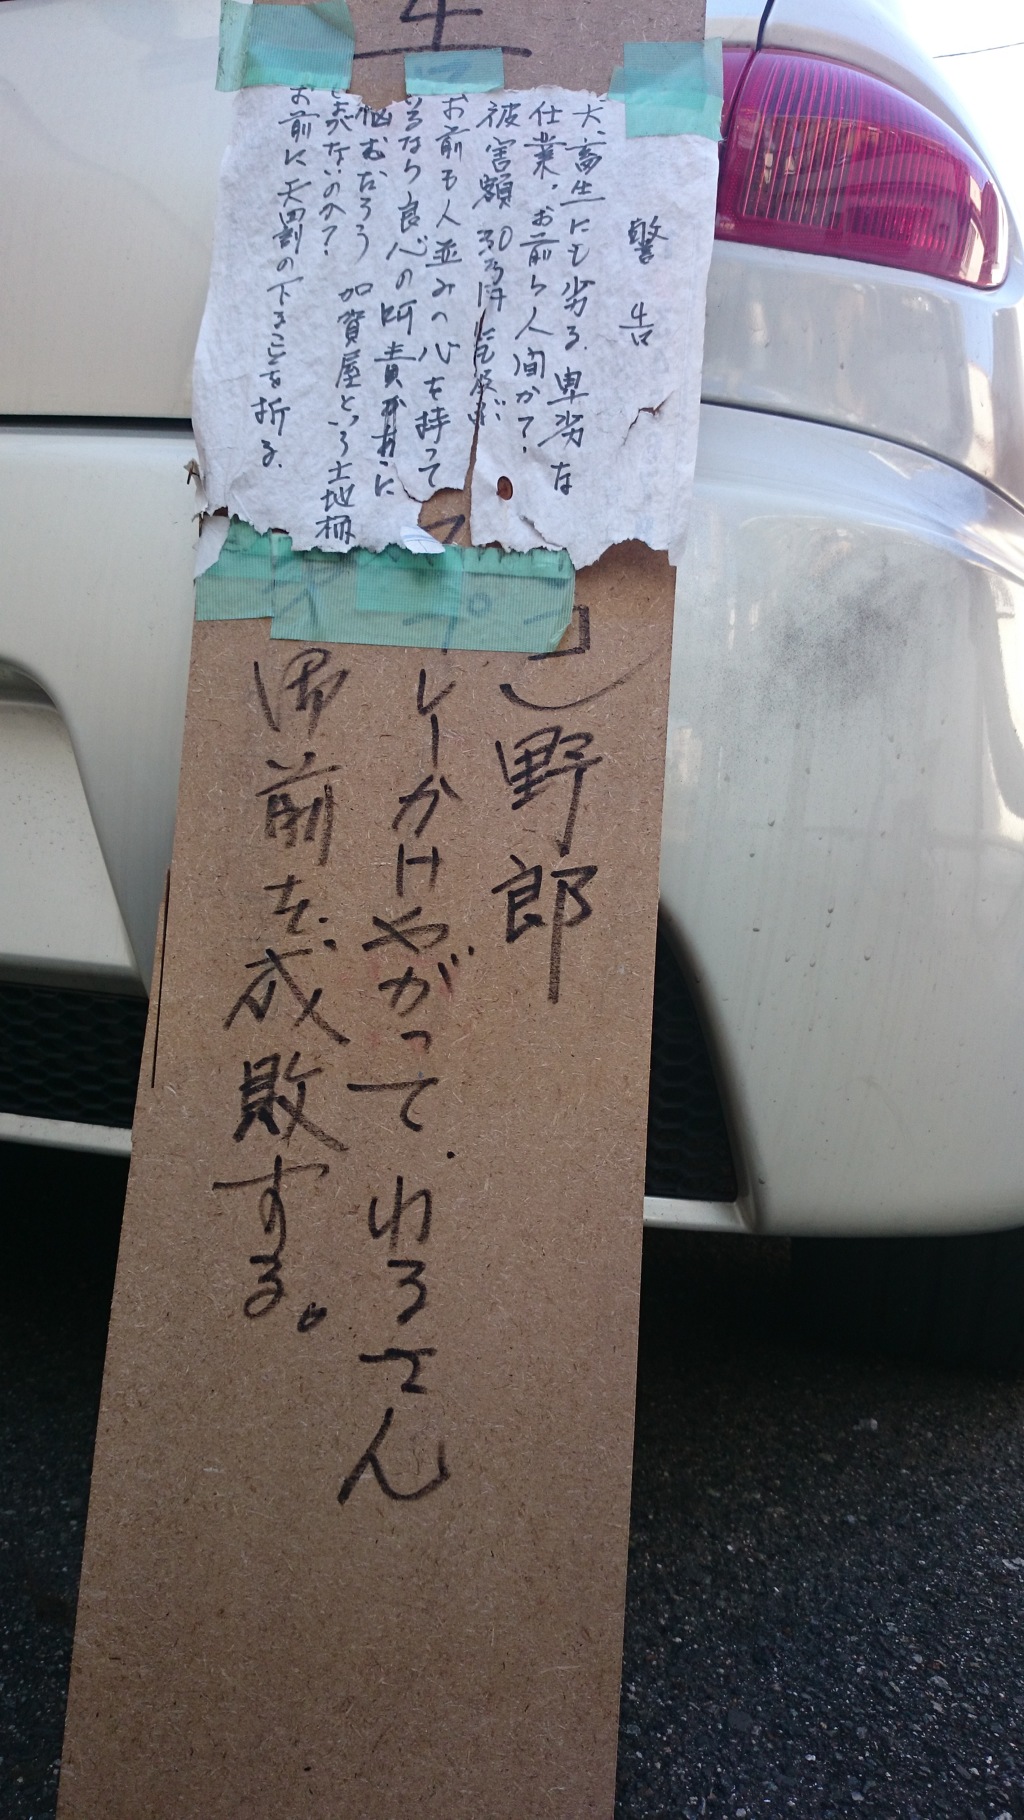 警告
犬畜生にも劣る、卑劣な
仕業、お前ら人間か?
被害額 30万円
お前も人並みの心を持って
いるなら良心の呵責
悩むだろう 加賀屋という土地柄
ないのか?
お前に天罰の下ることを祈る。
野郎
プレーかけやがって.ゆるさん
前を成敗する。